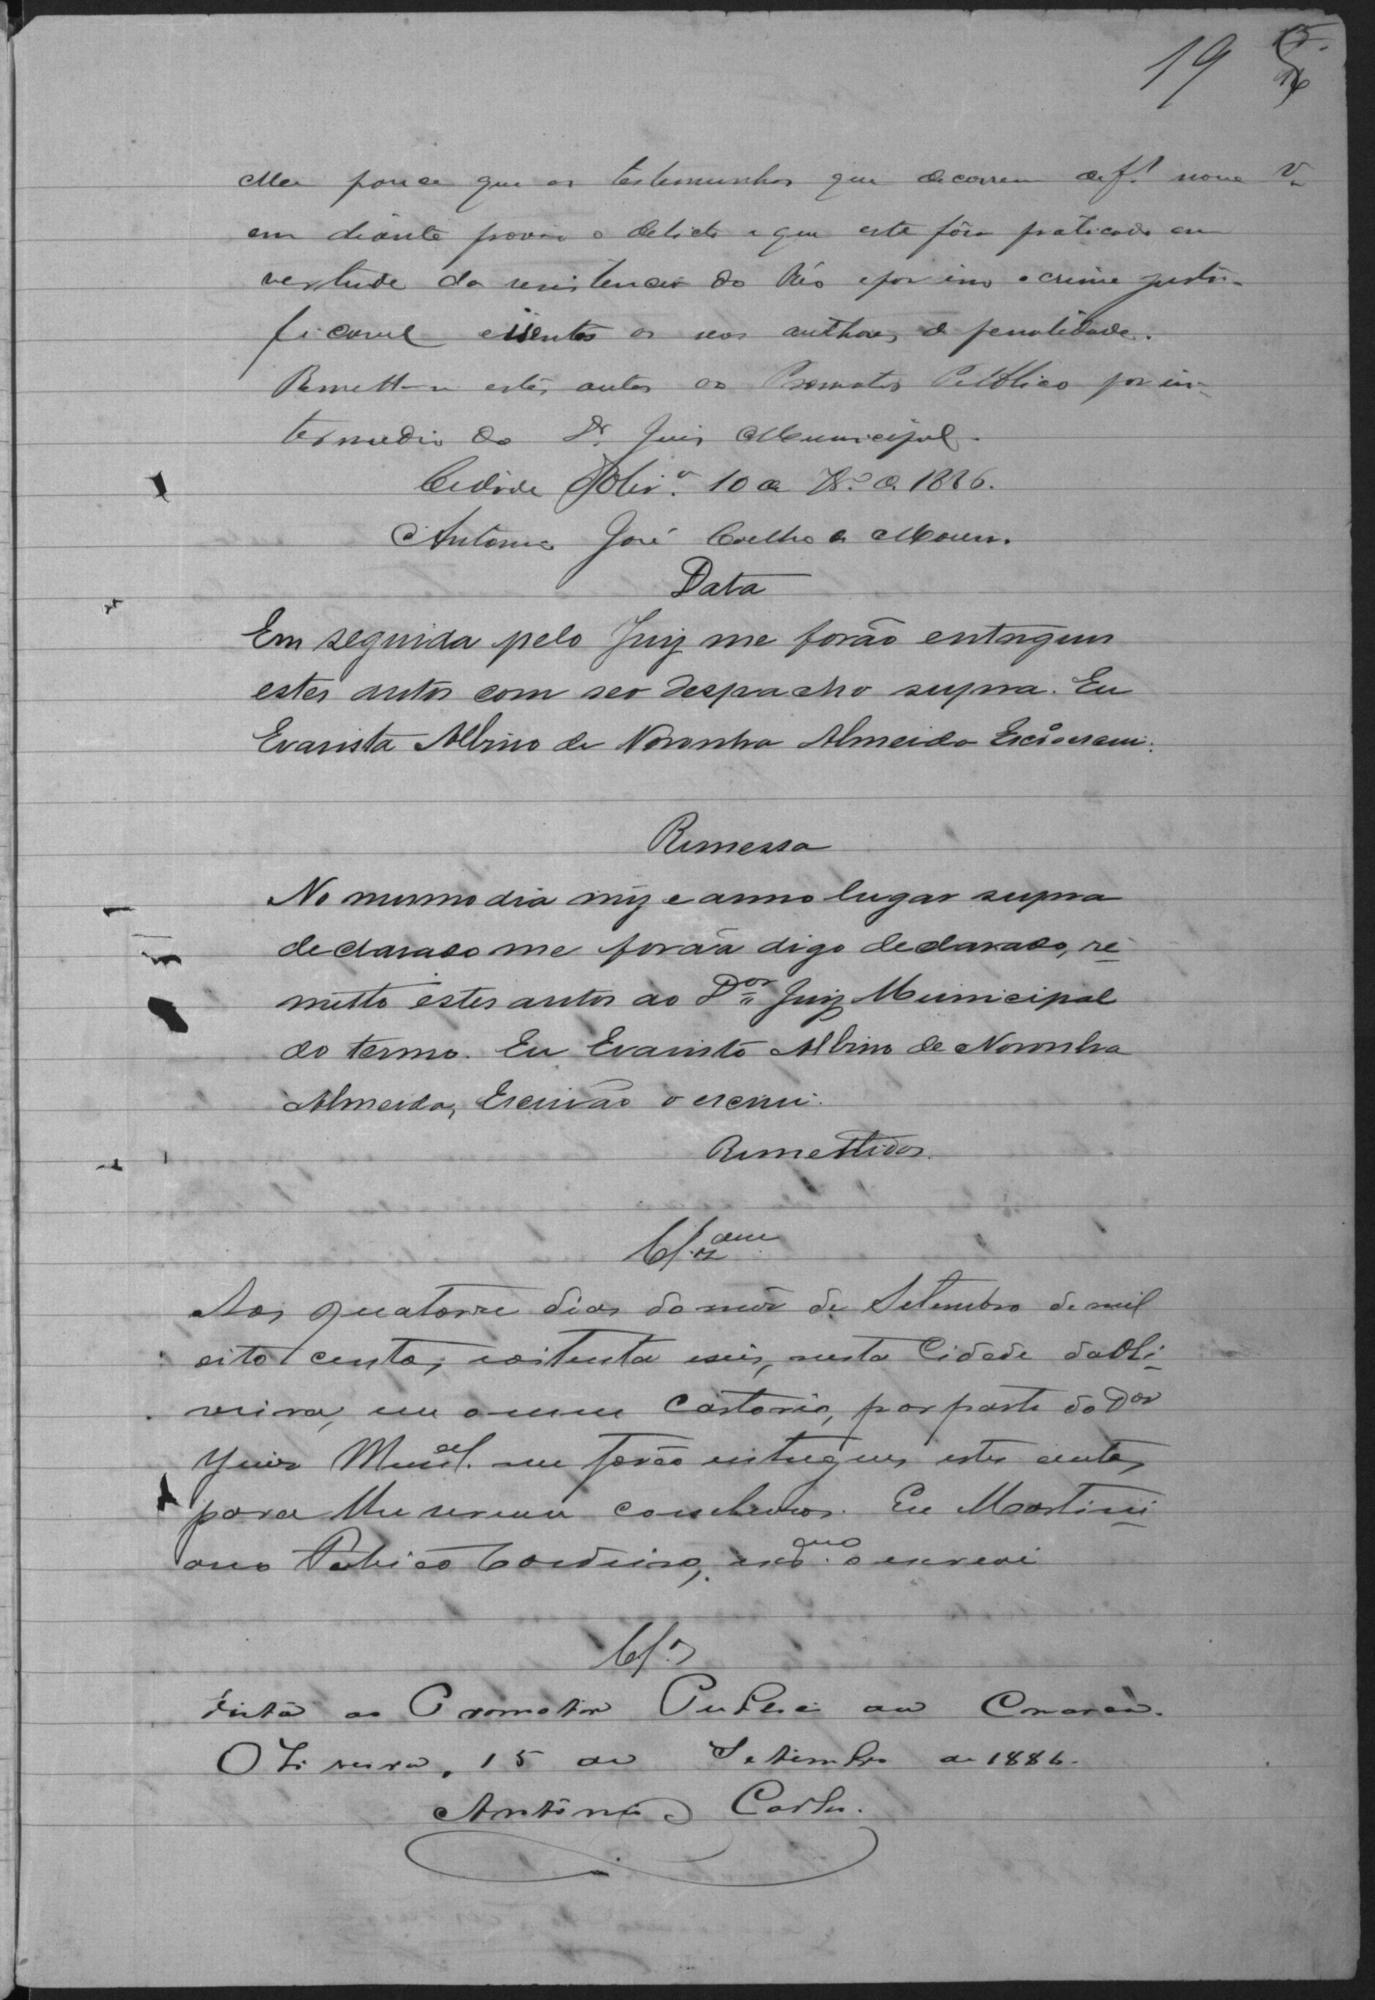 19
Me parece que as testemunhas que decorrem de f.ª nove V.
em diante provão o delicto e que este fôra praticado em
vertude da resistencia do Réo e por isso o crime justi-
ficavel e isentos os seos authores de penalidade.
Remetta-se estes autos ao Promotor Publico por in-
termedio do Dr. Juis Municipal.
Cidade Oliv.ª 10 de 7br.º de 1886.
Antonio José Coelho de Moura.
Data
Em seguida pelo Juiz me forão entregues
estes autos com seo despacho supra. Eu
Evaristo Albino de Noronha Almeida Escrivão o escrevi.
Remessa
No mesmo dia mez e anno lugar supra
declarado me forão digo declarado, re-
metto estes autos ao Dor Juiz Municipal
do termo. Eu Evaristo Albino de Noronha
Almeida, Escrivão o escrevi.
Remettidos.
Clzam
Aos quatorze dias do mez de Setembro de mil
oito centos, e oitenta e seis, nesta Cidade da Oli-
veira, em o meu Cartorio, por parte do Dor
Juiz Munal. me forão entregues estes autos
para lhe serem conclusos. Eu Martini
ano Cordeiro, o escrevi
Clz
Vista ao Promotor Publico da Comarca.
Oliveira, 15 de Setembro de 1886.
Antonio